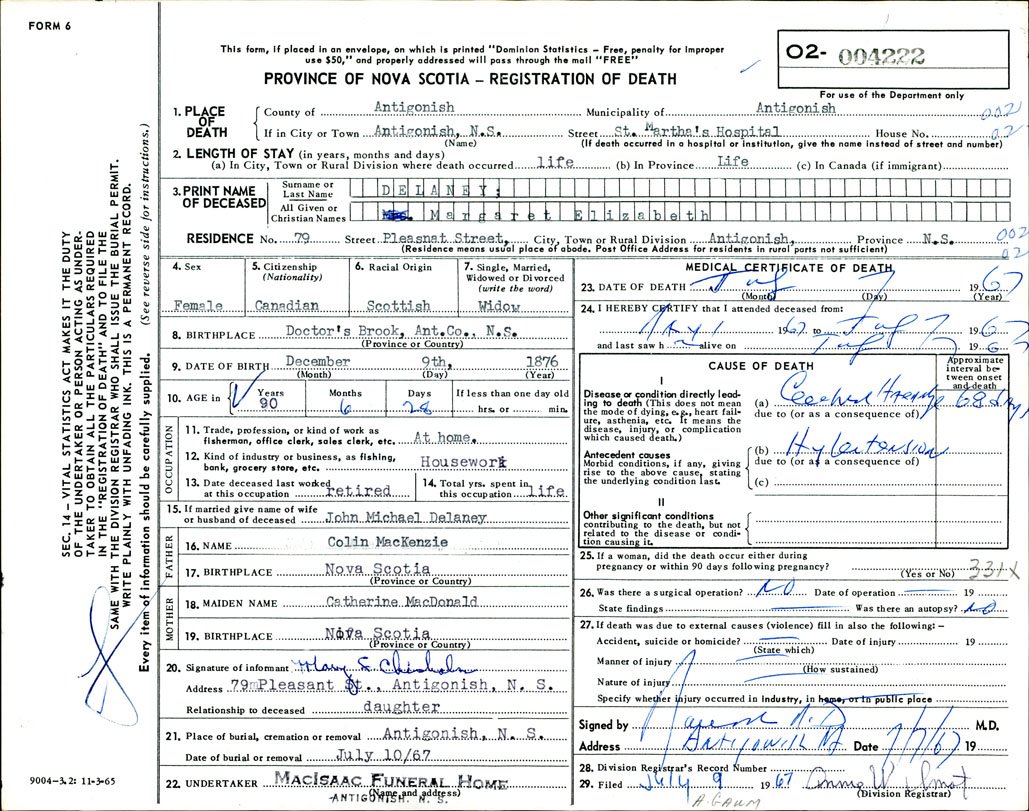 FORM 6
This form, if placed in an envelope, on which is printed "Dominion Statistics – Free, penalty for improper
use $50," and properly addressed will pass through the mail "FREE"
PROVINCE OF NOVA SCOTIA – REGISTRATION OF DEATH
O2- 004222
For use of the Department only
SEC. 14 – VITAL STATISTICS ACT MAKES IT THE DUTY
OF THE UNDERTAKER OR PERSON ACTING AS UNDER-
TAKER TO OBTAIN ALL THE PARTICULARS REQUIRED
IN THE "REGISTRATION OF DEATH" AND TO FILE THE
SAME WITH THE DIVISION REGISTRAR WHO SHALL ISSUE THE BURIAL PERMIT.
WRITE PLAINLY WITH UNFADING INK. THIS IS A PERMANENT RECORD.
Every item of information should be carefully supplied. (See reverse side for instructions.)
1. PLACE OF DEATH
County of Antigonish Municipality of Antigonish 002
If in City or Town Antigonish, N.S. Street St. Martha's Hospital House No. 02
(Name) (If death occurred in a hospital or institution, give the name instead of street and number)
2. LENGTH OF STAY (in years, months and days)
(a) In City, Town or Rural Division where death occurred life (b) In Province Life (c) In Canada (if immigrant)
3. PRINT NAME OF DECEASED
Surname or Last Name DELANEY;
All Given or Christian Names Mrs. Margaret Elizabeth
RESIDENCE No. 79 Street Pleasnat Street, City, Town or Rural Division Antigonish, Province N.S. 002
(Residence means usual place of abode. Post Office Address for residents in rural parts not sufficient) 02
4. Sex Female
5. Citizenship (Nationality) Canadian
6. Racial Origin Scottish
7. Single, Married, Widowed or Divorced (write the word) Widow
8. BIRTHPLACE Doctor's Brook, Ant.Co., N.S.
(Province or Country)
9. DATE OF BIRTH December 9th, 1876
(Month) (Day) (Year)
10. AGE in Years 90 Months 6 Days 28 If less than one day old hrs. or min.
OCCUPATION
11. Trade, profession, or kind of work as fisherman, office clerk, sales clerk, etc. At home.
12. Kind of industry or business, as fishing, bank, grocery store, etc. Housework
13. Date deceased last worked at this occupation retired
14. Total yrs. spent in this occupation life
15. If married give name of wife or husband of deceased John Michael Delaney
FATHER
16. NAME Colin MacKenzie
17. BIRTHPLACE Nova Scotia
(Province or Country)
MOTHER
18. MAIDEN NAME Catherine MacDonald
19. BIRTHPLACE Nova Scotia
(Province or Country)
20. Signature of informant Mary E Chisholm
Address 79 Pleasant St., Antigonish, N. S.
Relationship to deceased daughter
21. Place of burial, cremation or removal Antigonish, N. S.
Date of burial or removal July 10/67
22. UNDERTAKER MACISAAC FUNERAL HOME
(Name and address)
ANTIGONISH. N. S.
9004-3.2: 11-3-65
MEDICAL CERTIFICATE OF DEATH
23. DATE OF DEATH July 7 1967
(Month) (Day) (Year)
24. I HEREBY CERTIFY that I attended deceased from:
May 1 1967 to July 7 1967
and last saw h alive on July 7 1967
CAUSE OF DEATH
Approximate interval between onset and death
I
Disease or condition directly leading to death (This does not mean the mode of dying, e.g., heart failure, asthenia, etc. It means the disease, injury, or complication which caused death.)
(a) 68 days
due to (or as a consequence of)
Antecedent causes
Morbid conditions, if any, giving rise to the above cause, stating the underlying condition last.
(b) Hypertension
due to (or as a consequence of)
(c)
II
Other significant conditions contributing to the death, but not related to the disease or condition causing it.
25. If a woman, did the death occur either during pregnancy or within 90 days following pregnancy? 331X
(Yes or No)
26. Was there a surgical operation? NO Date of operation 19
State findings Was there an autopsy? NO
27. If death was due to external causes (violence) fill in also the following: –
Accident, suicide or homicide? Date of injury 19
(State which)
Manner of injury
(How sustained)
Nature of injury
Specify whether injury occurred in industry, in home, or in public place
Signed by M.D.
Address Antigonish NS Date 7/7/67 19
28. Division Registrar's Record Number
29. Filed July 9 1967
(Division Registrar)